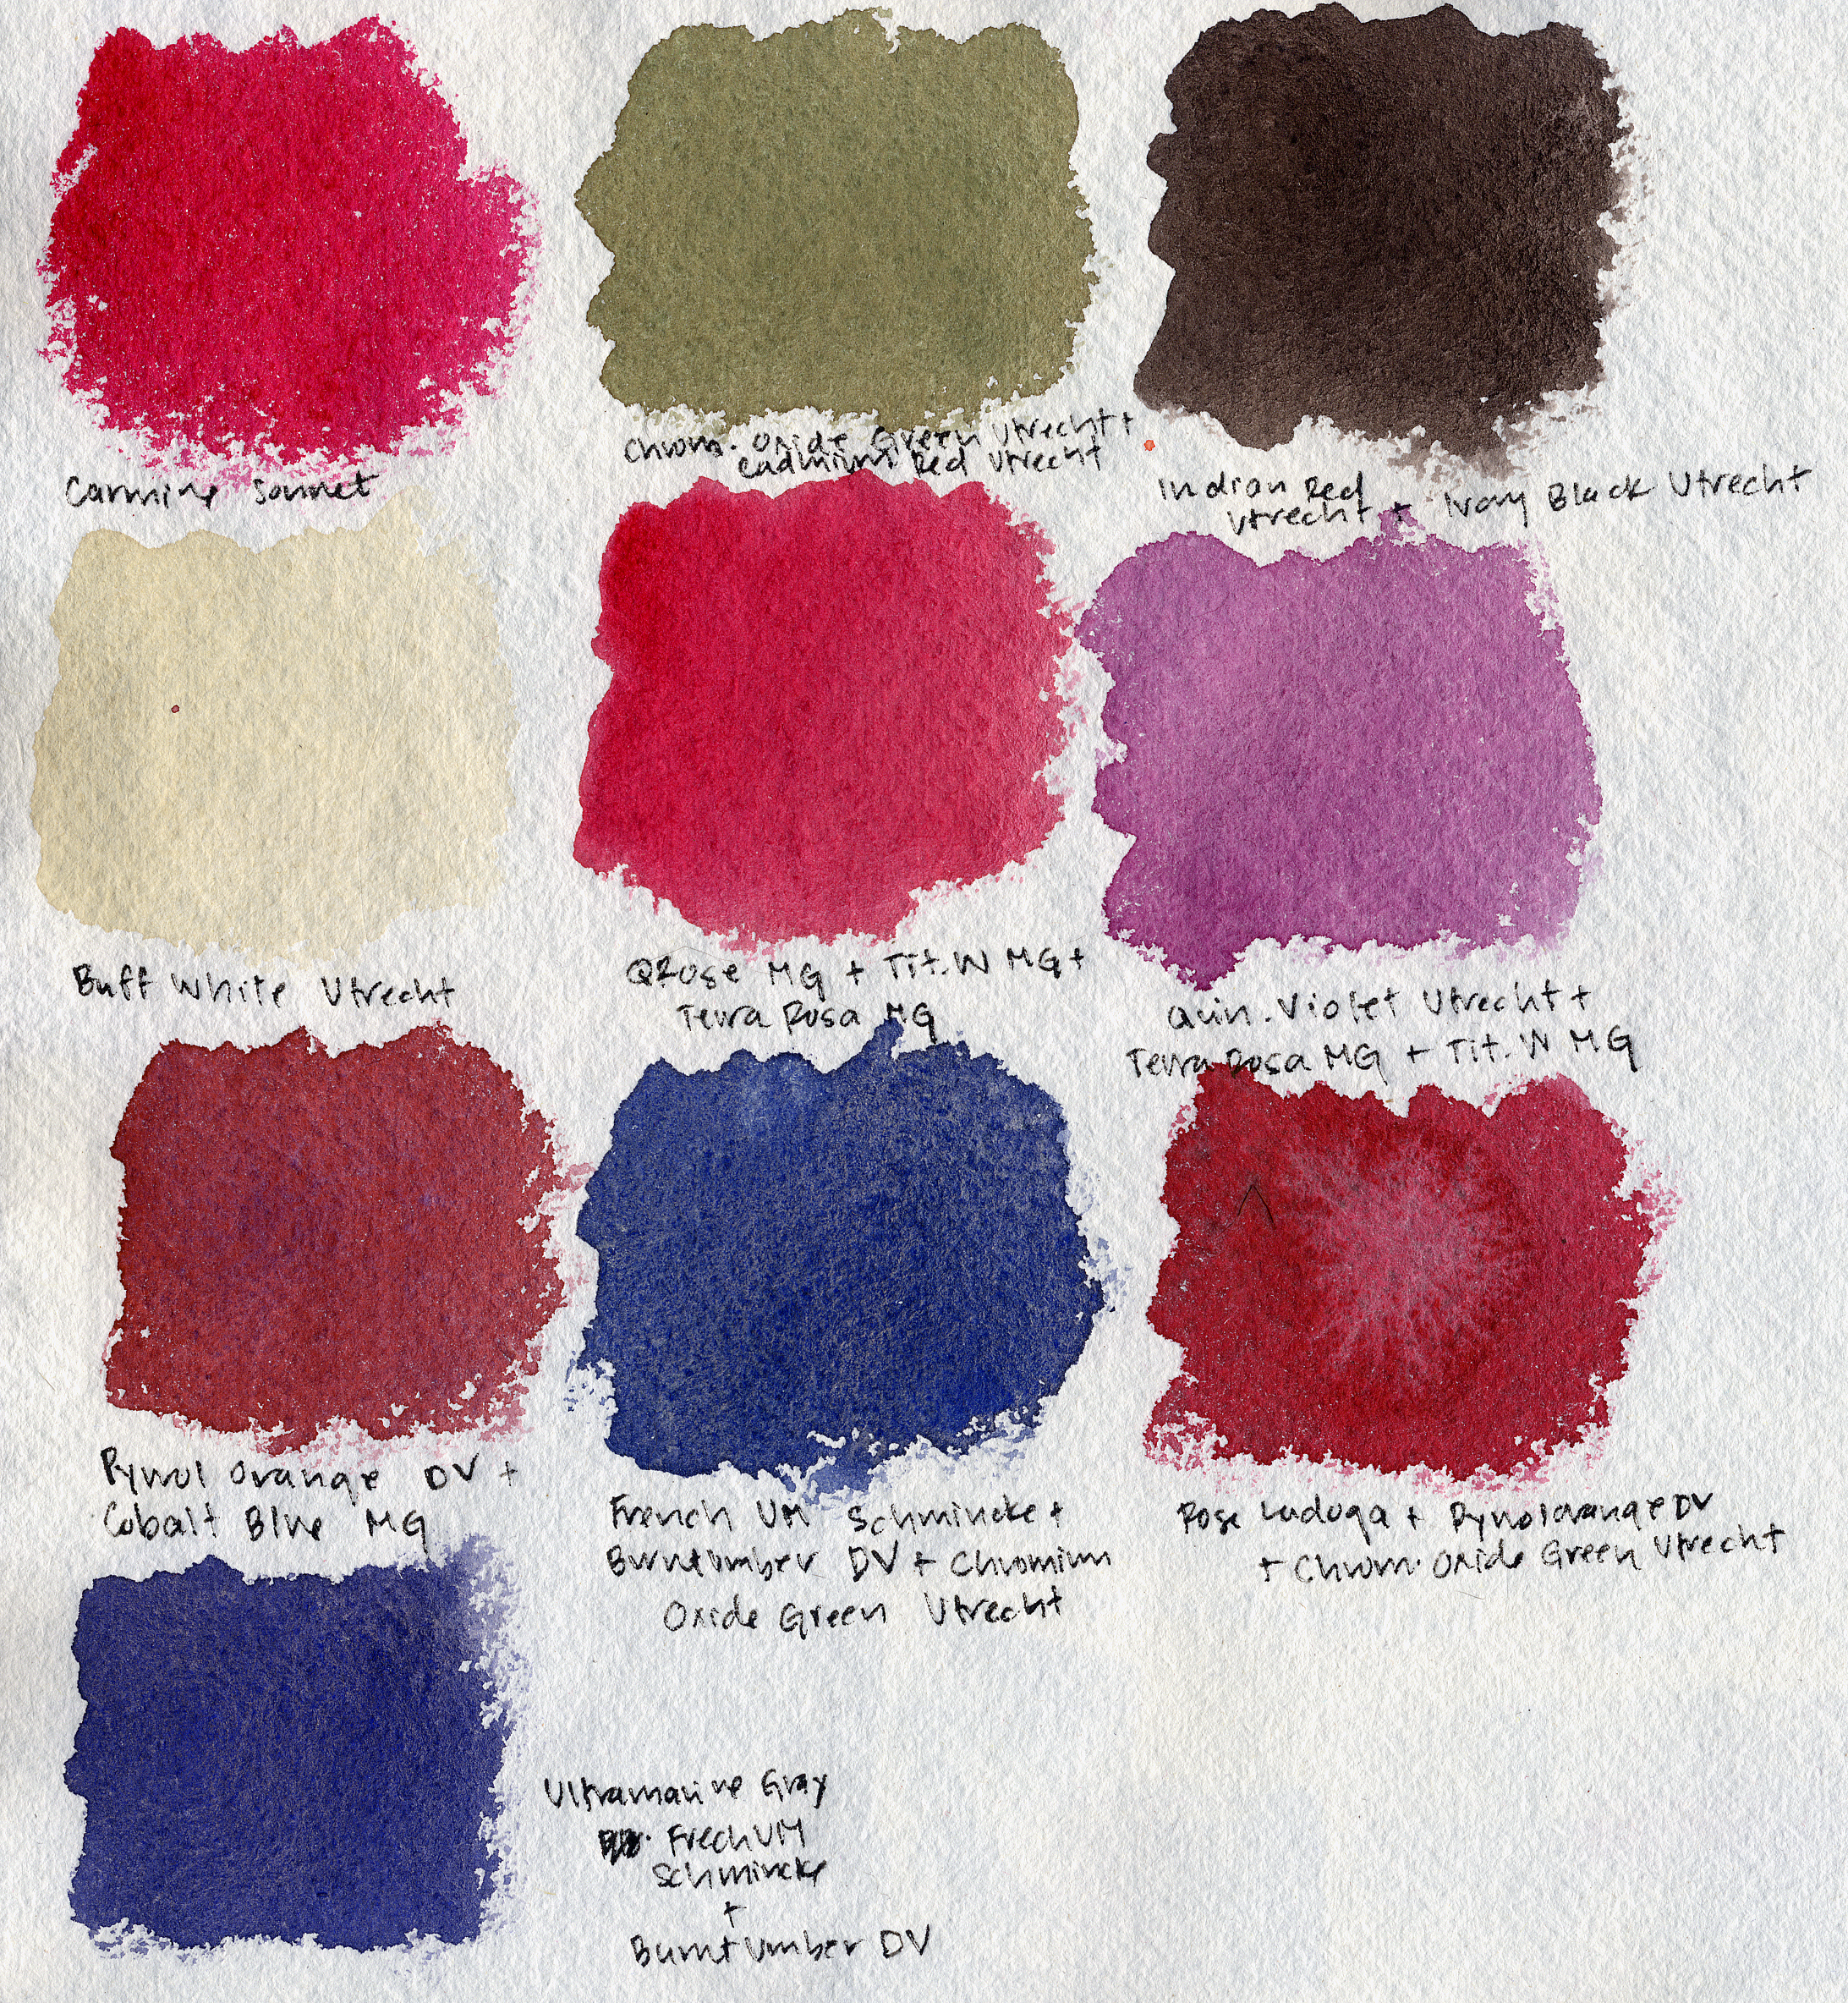 Carmine Sonnet
Chrom. Oxide Green Utrecht +
Cadmium Red Utrecht
Indian Red
Utrecht + Ivory Black Utrecht
Buff White Utrecht
QRose MG + Tit. W MG +
Terra Rosa MG
Quin. Violet Utrecht +
Terra Rosa MG + Tit. W MG
Pyrrol Orange DV +
Cobalt Blue MG
French UM Schmincke +
Burnt Umber DV + Chromium
Oxide Green Utrecht
Rose Ladoga + Pyrrol Orange DV
+ Chrom. Oxide Green Utrecht
Ultramarine Gray
Frech UM
Schmincke
+
Burnt Umber DV